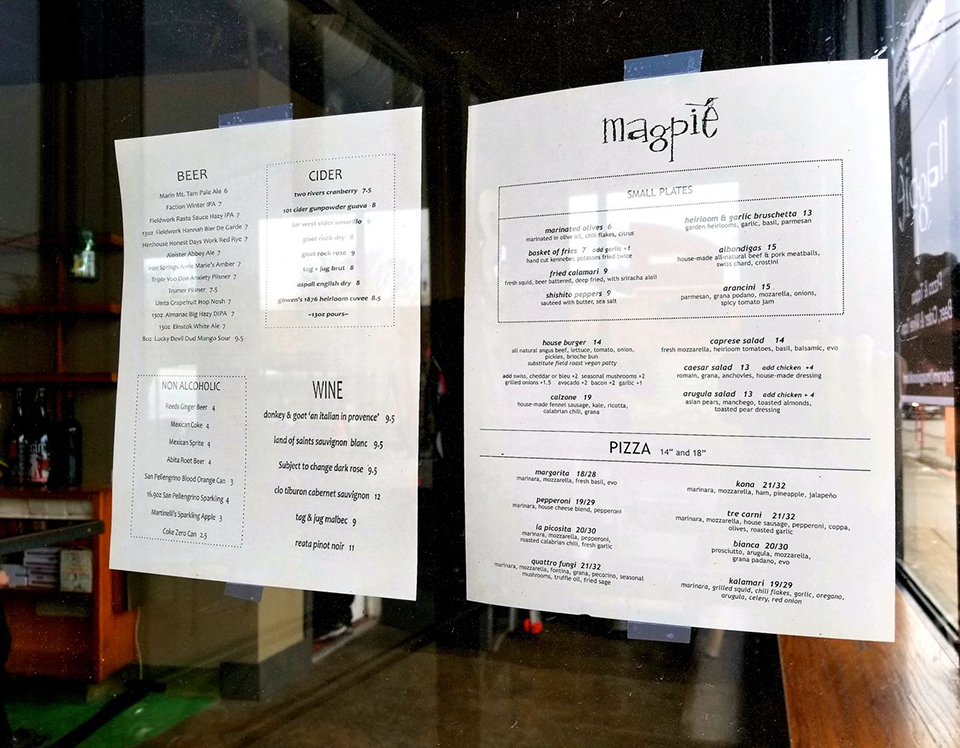 BEER
Marin Mt. Tam Pale Ale 6
Faction Winter IPA 7
Fieldwork Rasta Sauce Hazy IPA 7
13oz Fieldwork Hannah Bier De Garde 7
Henhouse Honest Days Work Red Rye 7
Aleister Abbey Ale 7
Iron Springs Anne Marie's Amber 7
Triple Voo Doo Anxiety Pilsner 7
Trumer Pilsner 7.5
Uinta Grapefruit Hop Nosh 7
13oz Almanac Big Hazy DIPA 7
13oz Einstok White Ale 7
8oz Lucky Devil Dud Mango Sour 9.5
CIDER
two rivers cranberry 7.5
101 cider gunpowder guava 8
far west cider amarillo 9
goat rock dry 8
goat rock rose 9
tag + jug brut 8
aspall english dry 8
gowen's 1876 heirloom cuvee 8.5
~13oz pours~
NON ALCOHOLIC
Reeds Ginger Beer 4
Mexican Coke 4
Mexican Sprite 4
Abita Root Beer 4
San Pellengrino Blood Orange Can 3
16.9oz San Pellengrino Sparkling 4
Martinelli's Sparkling Apple 3
Coke Zero Can 2.5
WINE
donkey & goat 'an italian in provence' 9.5
land of saints sauvignon blanc 9.5
Subject to change dark rose 9.5
clo tiburon cabernet sauvignon 12
tag & jug malbec 9
reata pinot noir 11
magpie
SMALL PLATES
marinated olives 6
marinated in olive oil, chili flakes, citrus
basket of fries 7 add garlic +1
hand cut kennebec potatoes fried twice
fried calamari 9
fresh squid, beer battered, deep fried, with sriracha aioli
shishito peppers 9
sauteed with butter, sea salt
heirloom & garlic bruschetta 13
garden heirlooms, garlic, basil, parmesan
albondigas 15
house-made all-natural beef & pork meatballs,
swiss chard, crostini
arancini 15
parmesan, grana podano, mozarella, onions,
spicy tomato jam
house burger 14
all natural angus beef, lettuce, tomato, onion,
pickles, brioche bun
substitute field roast vegan patty
add swiss, cheddar or bleu +2 seasonal mushrooms +2
grilled onions +1.5 avocado +2 bacon +2 garlic +1
calzone 19
house-made fennel sausage, kale, ricotta,
calabrian chili, grana
caprese salad 14
fresh mozzarella, heirloom tomatoes, basil, balsamic, evo
caesar salad 13 add chicken +4
romain, grana, anchovies, house-made dressing
arugula salad 13 add chicken + 4
asian pears, manchego, toasted almonds,
toasted pear dressing
PIZZA 14" and 18"
margarita 18/28
marinara, mozzarella, fresh basil, evo
pepperoni 19/29
marinara, house cheese blend, pepperoni
la picosita 20/30
marinara, mozzarella, pepperoni,
roasted calabrian chili, fresh garlic
quattro fungi 21/32
marinara, mozzarella, fontina, grana, pecorino, seasonal
mushrooms, truffle oil, fried sage
kona 21/32
marinara, mozzarella, ham, pineapple, jalapeño
tre carni 21/32
marinara, mozzarella, house sausage, pepperoni, coppa,
olives, roasted garlic
bianca 20/30
prosciutto, arugula, mozzarella,
grana padano, evo
kalamari 19/29
marinara, grilled squid, chili flakes, garlic, oregano,
arugula, celery, red onion